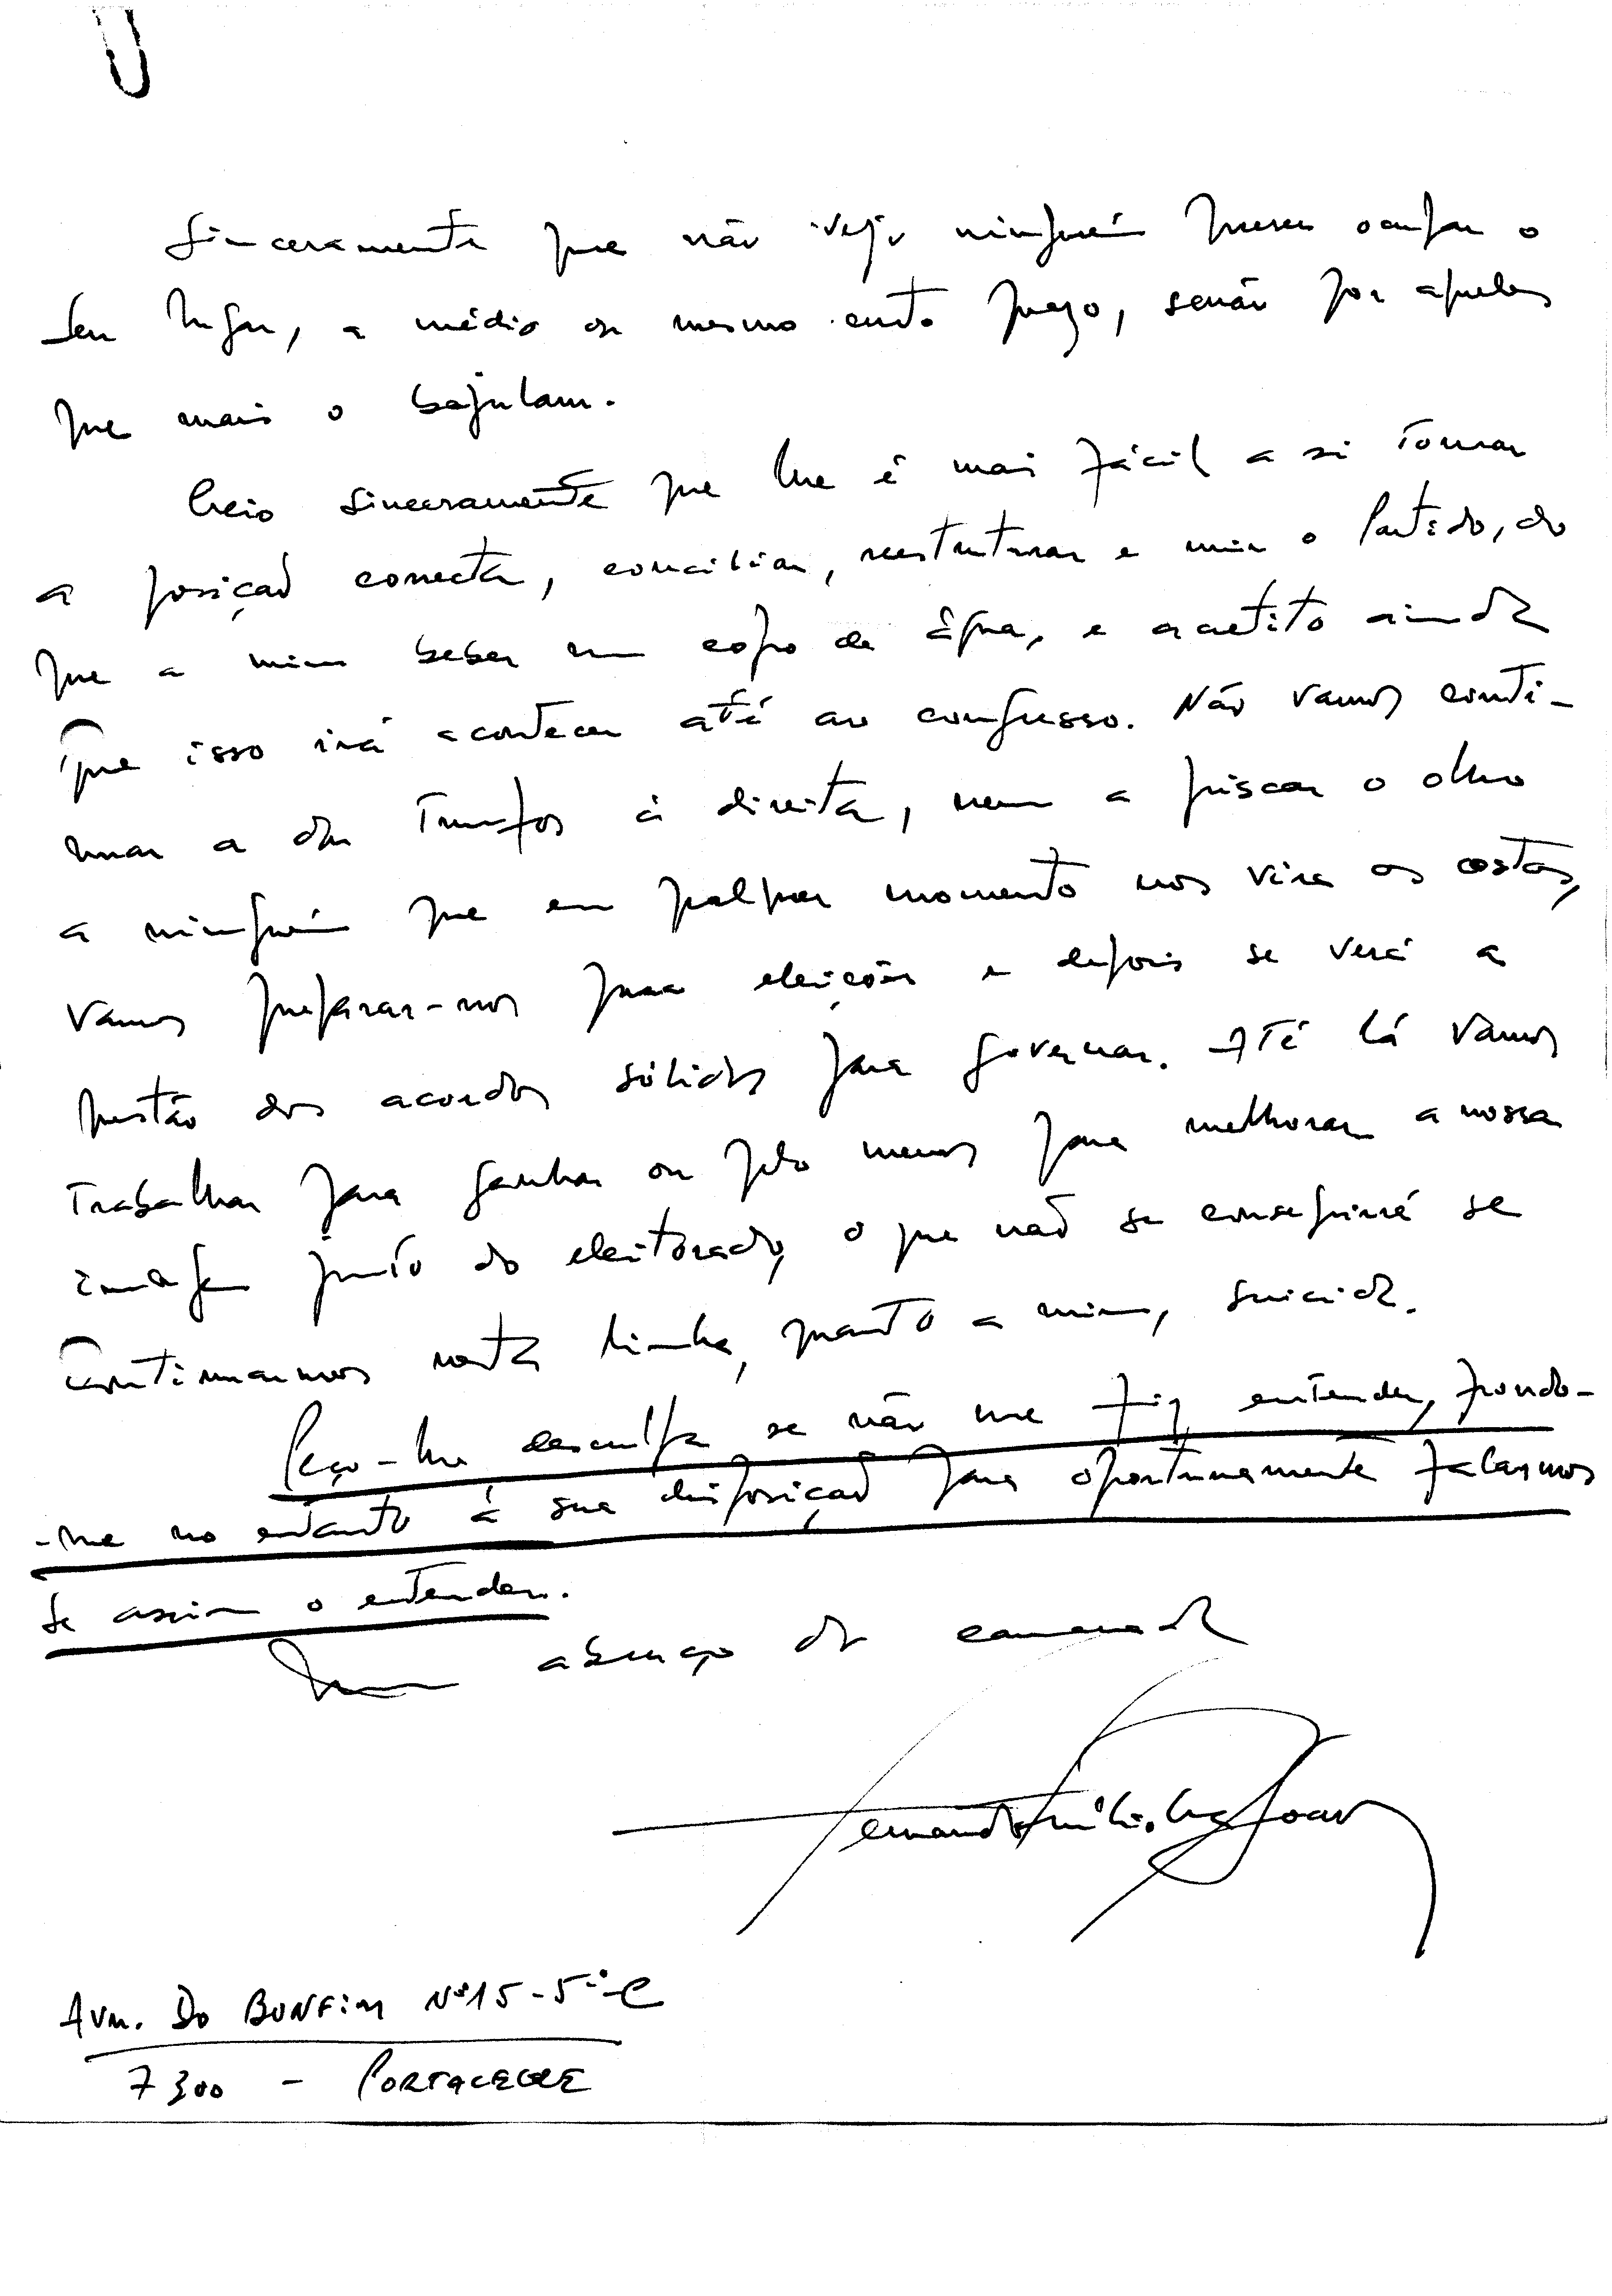 Sinceramente que não vejo ninguém querer ocupar o
seu lugar, a médio ou mesmo curto prazo, senão por aqueles
que mais o bajulam.
Creio sinceramente que lhe é mais fácil a si tomar
a posição correcta, conciliar, reestruturar e unir o Partido, do
que a mim beber um copo de água, e acredito ainda
que isso irá acontecer até ao congresso. Não vamos conti-
nuar a dar trunfos à direita, nem a piscar o olho
a ninguém que em qualquer momento nos vira as costas,
vamos preparar-nos para eleições e depois se verá a
questão dos acordos sólidos para governar. Até lá vamos
trabalhar para ganhar ou pelo menos para melhorar a nossa
imagem junto do eleitorado, o que não se conseguirá se
continuarmos nesta linha, quanto a mim, suicida.
Peço-lhe desculpa se não me fiz entender, pondo-
-me no entanto à sua disposição para oportunamente falarmos
se assim o entender.
Um abraço do camarada
Fernando
Avn. Do BONFIM Nº 15 - 5º-C
7300 - PORTALEGRE